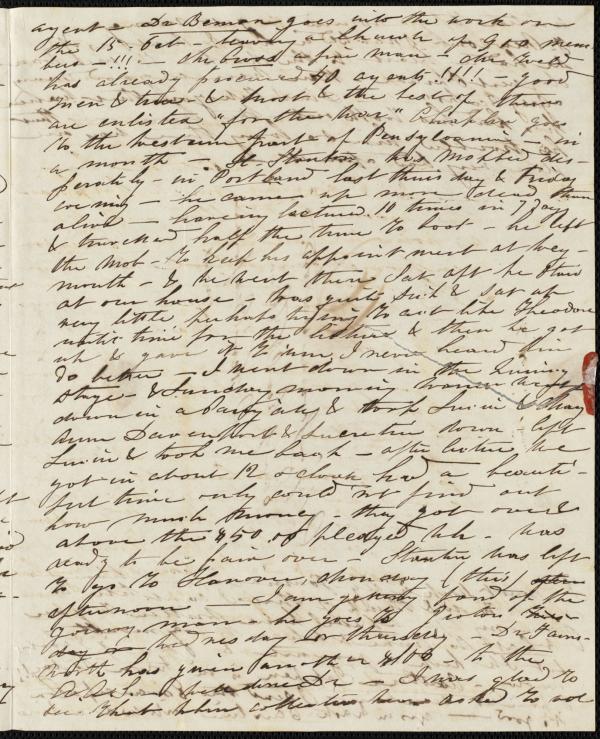 agent - Dr Beman goes into the work on
the 15. Oct - leaves a Church of 900 mem
bers - !!! - the bless a fine man - the Weld
has already procured 40 agents !!!! - good
men & true - & most & the best of them
are enlisted "for the War" Chaplin goes
to the western part of Pensylvania - in
a month - H. Stanton - has mobbed des-
perately - in Portland last thursday & Friday
evening - he came up more dead than
alive - having lectured 10 times in 7 days
& travelled half the time to boot - he left
the mob - to keep his appointment at Wey-
mouth - & he went there Sat aft he staid
at our house - was quite sick & sat up
very little perhaps trying to act like Theodore
until time for the lecture & then he got
up & gave it to um I never heard him
do better - I went down in the evening
stage - & Sunday morning
down in a Carryall & took & Mary
Ann Davenport & Lucretia down - left
& took me back - after lecture we
got in about 12 o clock had a beauti-
ful time only could nt find out
how much money - they got over &
above the $50 of pledged wh. was
ready to be paid over - Stanton was left
to go to Hanover, Monday (this)
afternoon - I am getting fond of the
young man - he goes to Groton
wednesday or thursday - Dr Farns-
worth has given another $100 to the
- I was glad to
see that when collections have asked to